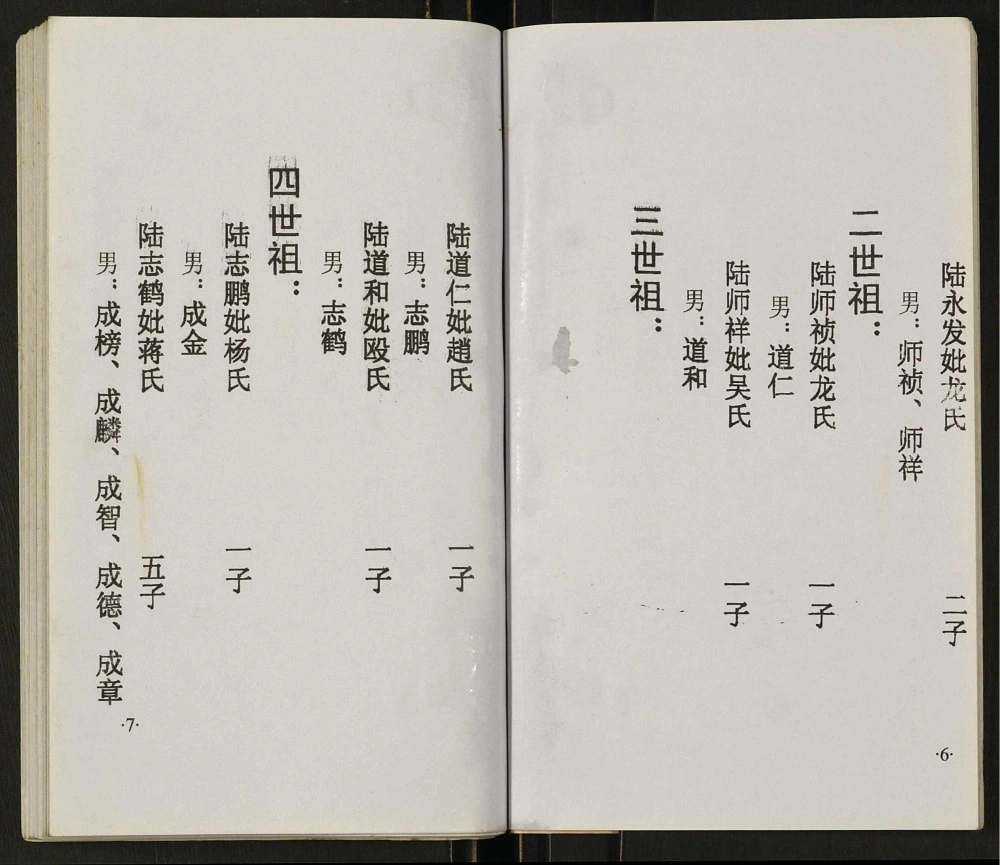 陆永发妣龙氏 二子
男：师祯、师祥
二世祖：
陆师祯妣龙氏 一子
男：道仁
陆师祥妣吴氏 一子
男：道和
三世祖：
·6·
陆道仁妣趙氏 一子
男：志鹏
陆道和妣殴氏 一子
男：志鹤
四世祖：
陆志鹏妣杨氏 一子
男：成金
陆志鹤妣蒋氏 五子
男：成榜、成麟、成智、成德、成章
·7·